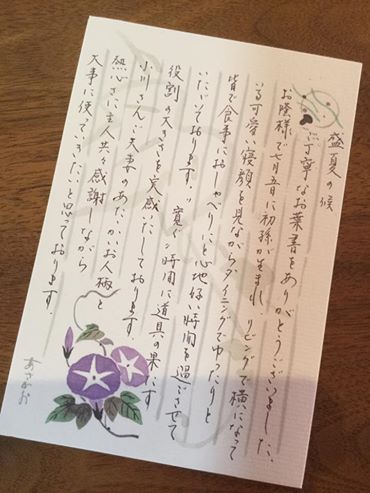 盛夏の候
ご丁寧なお葉書をありがとうございました。
お陰様で七月五日に初孫が生まれ、リビングで横になって
いる可愛い寝顔を見ながらダイニングでゆったりと
皆で食事におしゃべりにと心地好い時間を過ごさせて
いただいております。"寛ぐ"時間に道具の果たす
役割の大きさを実感いたしております。
小川さんご夫妻のあたたかいお人柄と
熱心さに主人共々感謝しながら
大事に使っていきたいと思っております。
あさがお